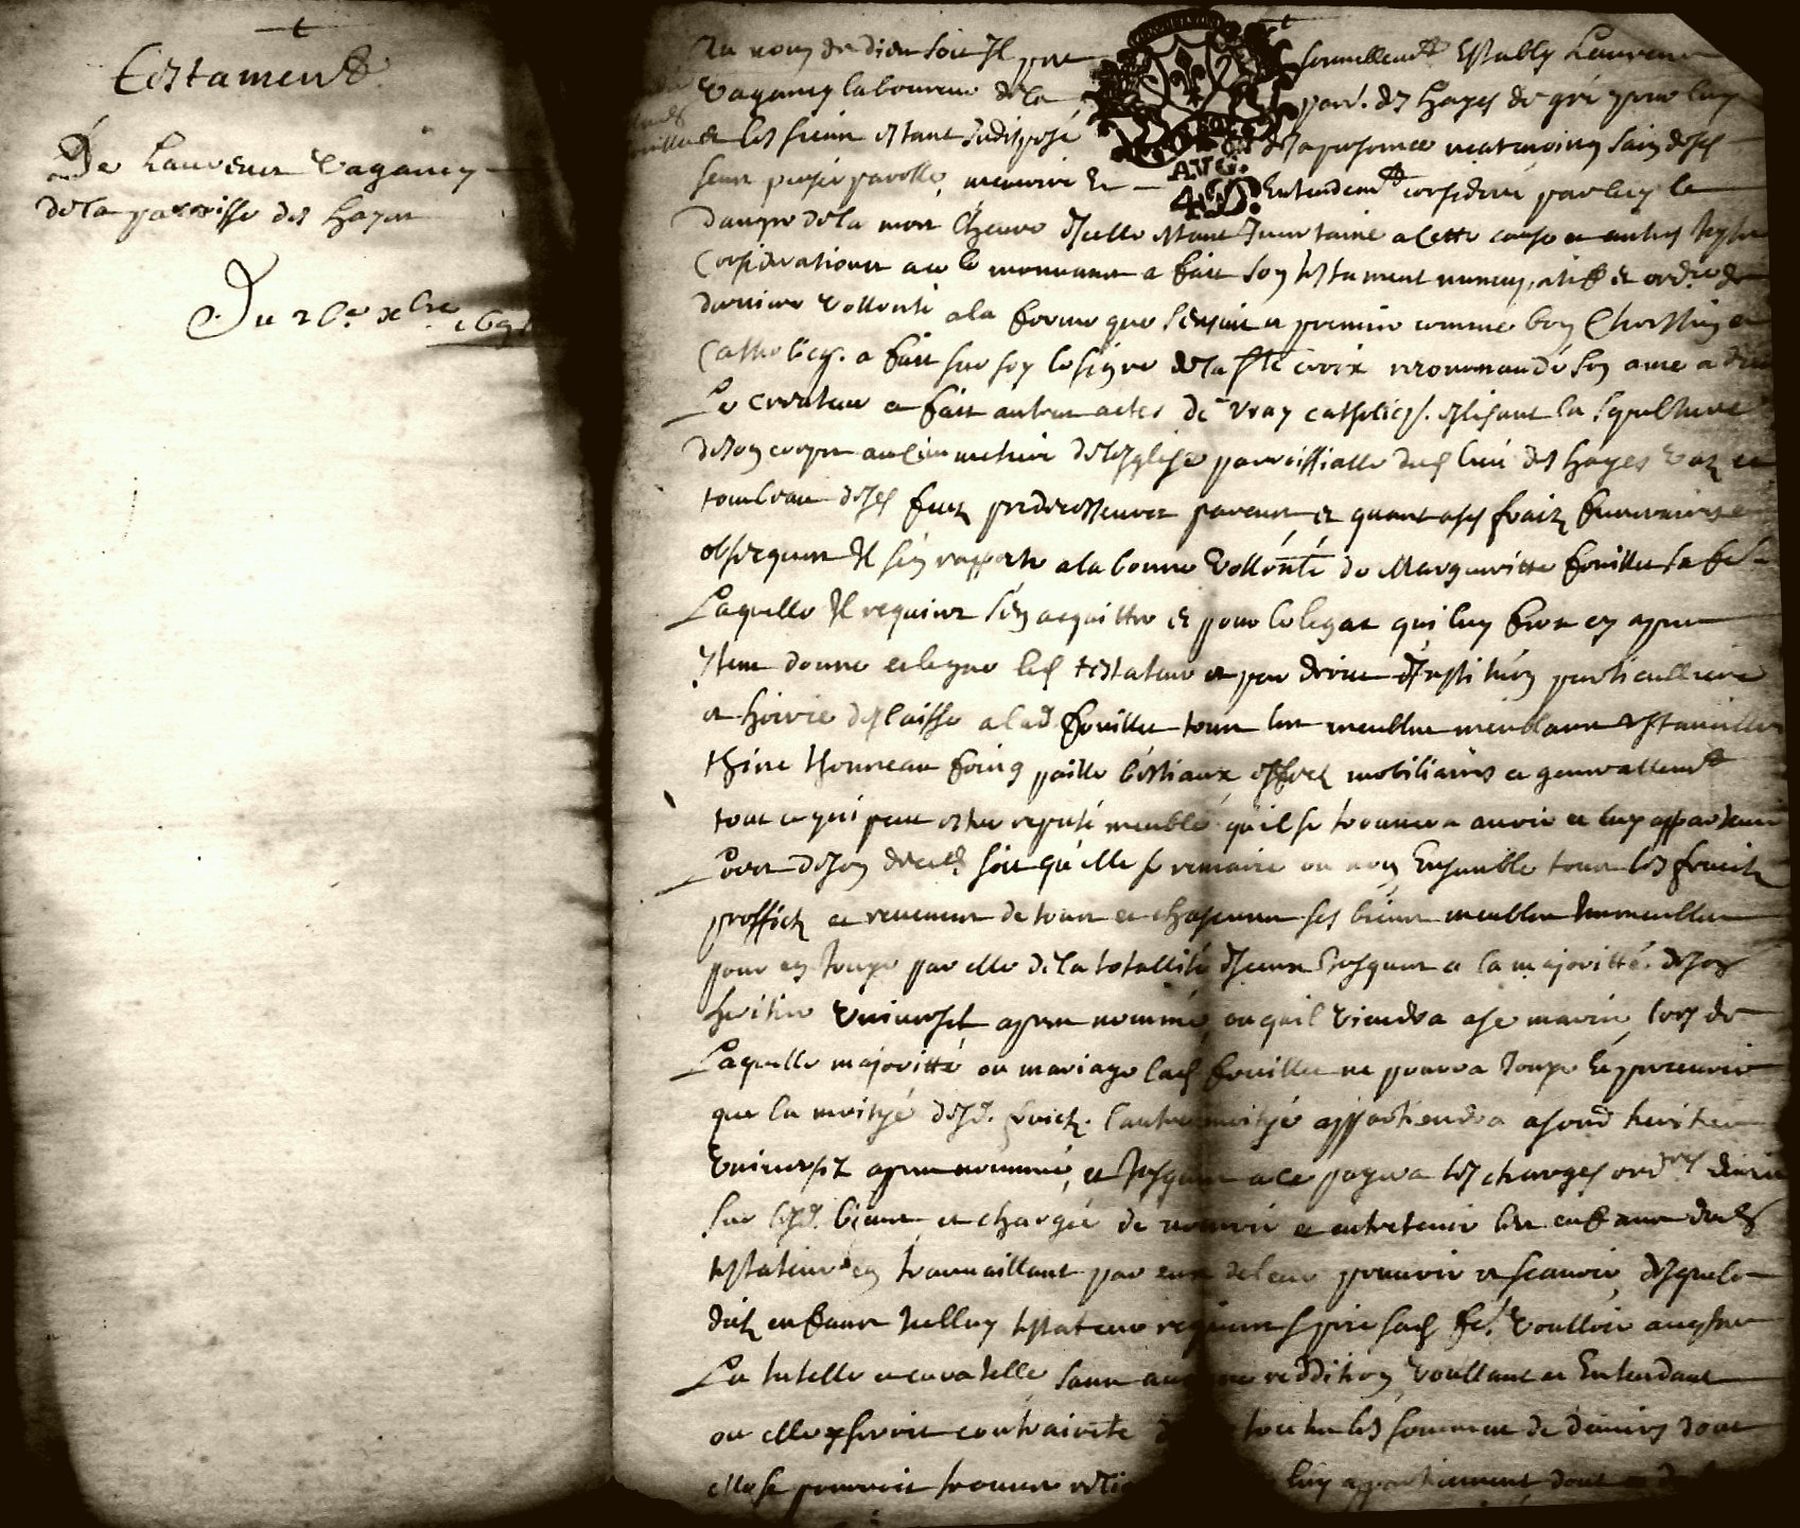 Testament
De Laurens Vaganey
de la parroisse des hayes
Du 26e xbre 169
Au nom de dieu soit Il personnellemt Estably Laurens
Vaganey laboureur de la parr. des hayes de gré pour luy
et les siens estant Indisposé de sa personne neatmoins sain de ses
sens pensée parolle, memoire Et Entendemt considere par luy le
AVG.
4.D.
danger de la mort l'heure d'Icelle estant Incertaine a cette cause et autres Justes
Considerations a ce le mouvant a fait son testament nuncupatif et ord.ce de
derniere Vollonté a la forme que s'ensuit et premier comme bon Chrestien et
Catholicq. a fait sur soy le signe de la Ste croix recommandé son ame a dieu
Le Createur et fait autres actes de vray catholicq. eslisant la sepulture
de son corps au cimmetiere de l'esglise parroissialle dud lieu des hayes Vaz et
tombeau de ses feuz predecesseurs parents, et quant a ses fraiz funeraires et
obseques Il s'en rapporte a la bonne Vollonté de Margueritte fouillu sa fe
Laquelle Il requiert s'en acquitter et pour le legat qu'il luy fera cy apres
Item donne et legue led testateur et par droict d'Institution particulliere
et hoirie delaisse a lad. fouillu tous les meubles meublants Ustancilles
thine thonneau foing paille bestiaux effects mobiliaires et generallemt
tout ce qui peut estre reputé meuble qu'il se trouvera avoir et luy appartenir
Lors de son deceds soit qu'elle se remarie ou non Ensemble tous les fruictz
proffictz et revenus de tous et chascuns ses biens meubles Immeubles
pour en Jouyr par elle de la totallité d'Iceux Jusques a la majoritté de son
heritier Universel apres nommé ou qu'il viendra a se marier, lors de
Laquelle majoritté ou mariage lad fouillu ne pourra Jouyr et percevoir
que la moityé desd. fruictz. l'autre moityé appartiendra a sond heritier
Universel apres nommé, et Jusques a ce payera les charges ordres deues
sur lesd. biens et chargée de nourrir et entretenir les enfants dud
testateur en travaillant par eux de leur pouvoir et scavoir, desquels
dictz enfants Icelluy testateur requiert prie sad fe. Voulloir accepter
La tutelle et curatelle sans aucune reddition Voullant et Entendant
ou elle seroit contrainte toutes les sommes de deniers dont
elle se pourroit trouver luy appartiennent dont